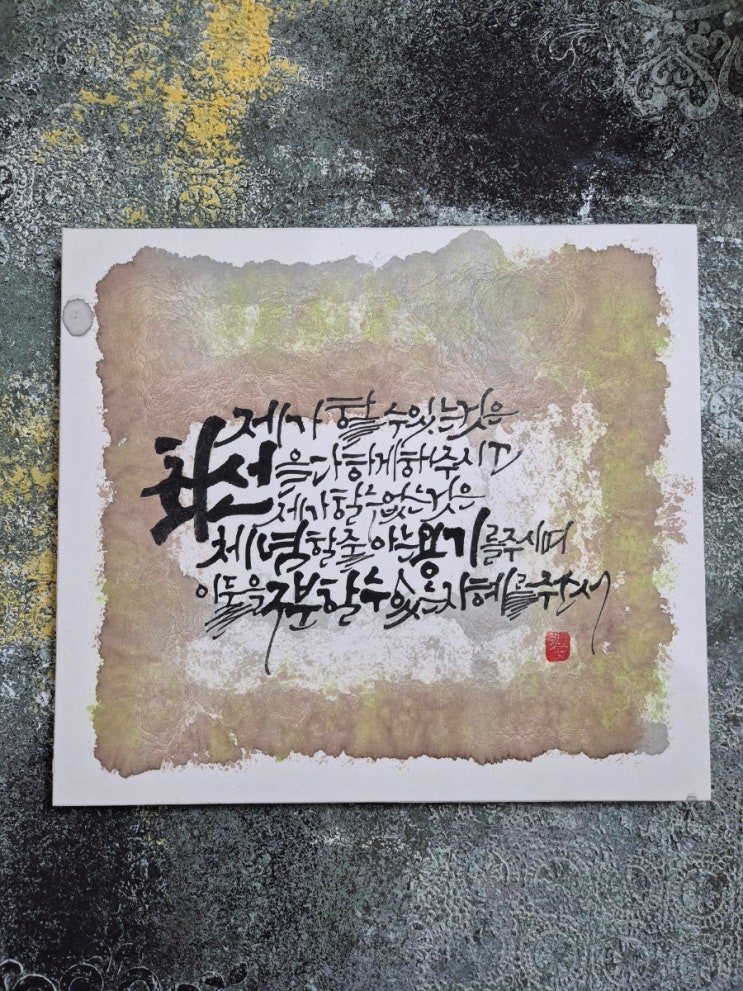 제가 할 수 있는 것은
최선을 다하게 해 주시고
제가 할 수 없는 것은
체념할 줄 아는 용기를 주시며
이 둘을 구분할 수 있는 지혜를 주소서